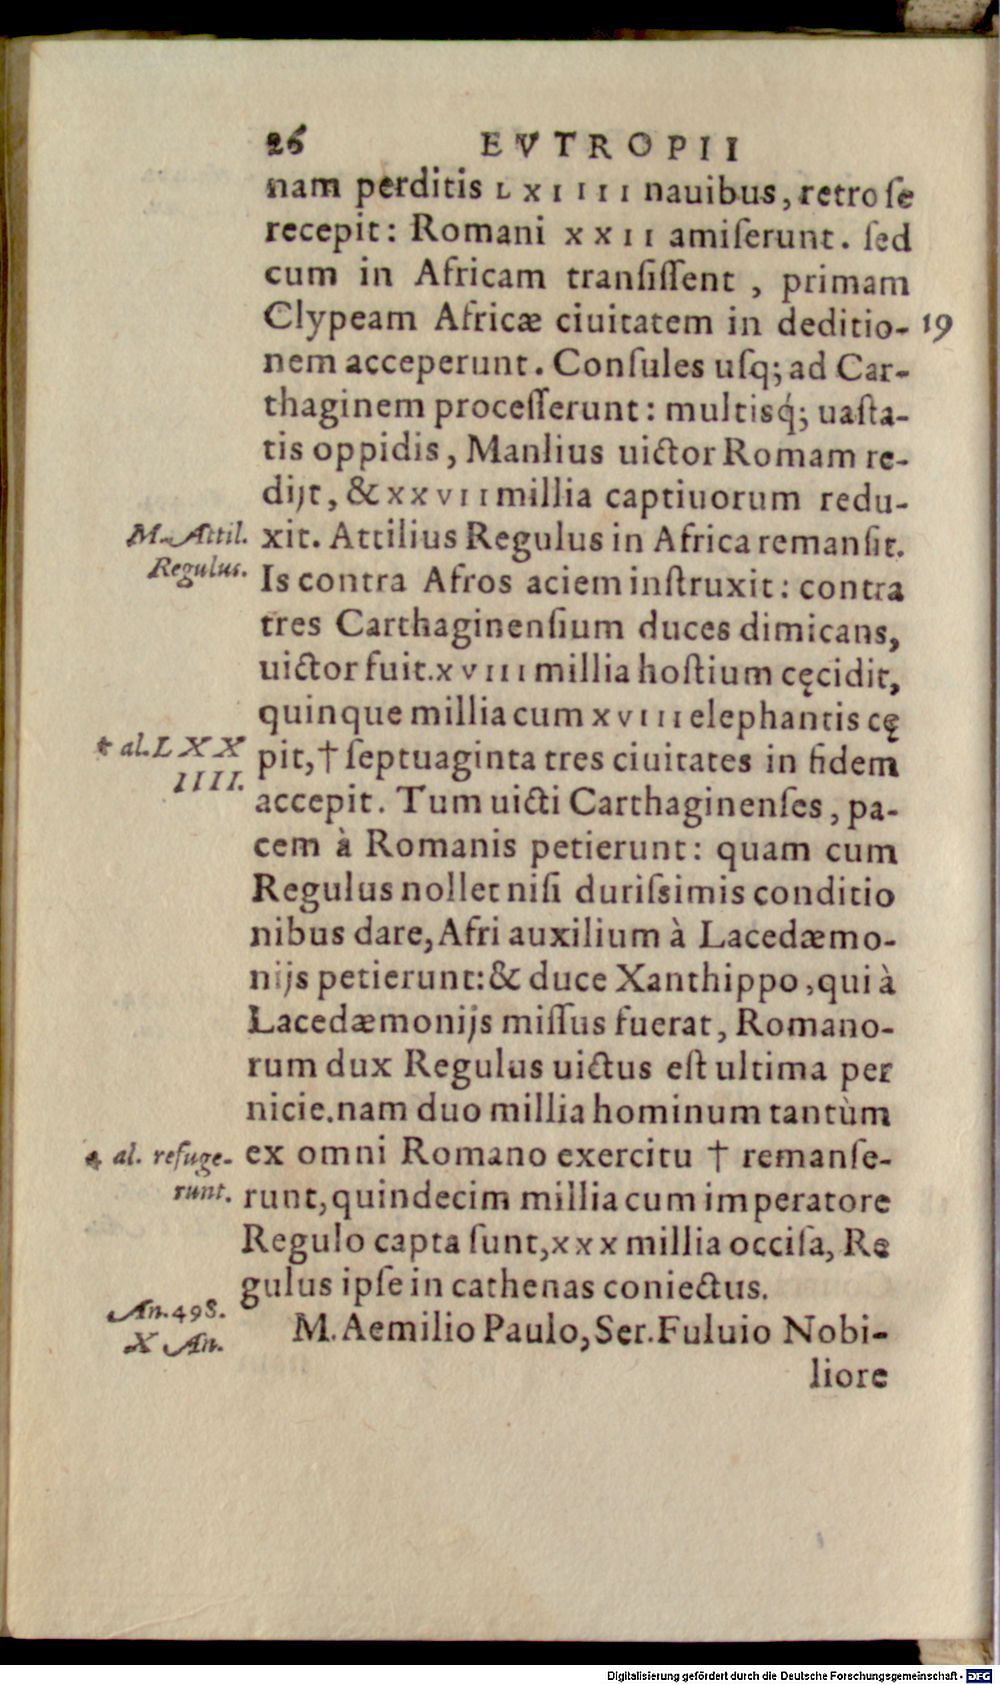 26 EVTROPII
nam perditis LXIIII nauibus, retro ſe
recepit: Romani XXII amiſerunt. ſed
cum in Africam tranſiſſent , primam
Clypeam Africæ ciuitatem in deditio- 19
nem acceperunt. Conſules uſq; ad Car-
thaginem proceſſerunt: multisq́; uaſta-
tis oppidis, Manlius uictor Romam re-
dijt, & XXVII millia captiuorum redu-
M. Attil. xit. Attilius Regulus in Africa remanſit.
Regulus. Is contra Afros aciem inſtruxit: contra
tres Carthaginenſium duces dimicans,
uictor fuit. XVIII millia hoſtium cęcidit,
quinque millia cum XVIII elephantis cę
† al. LXX pit, † ſeptuaginta tres ciuitates in fidem
IIII. accepit. Tum uicti Carthaginenſes, pa-
cem à Romanis petierunt: quam cum
Regulus nollet niſi duriſsimis conditio
nibus dare, Afri auxilium à Lacedæmo-
nijs petierunt: & duce Xanthippo, qui à
Lacedæmonijs miſſus fuerat, Romano-
rum dux Regulus uictus eſt ultima per
nicie. nam duo millia hominum tantùm
† al. refuge- ex omni Romano exercitu † remanſe-
runt. runt, quindecim millia cum imperatore
Regulo capta ſunt, XXX millia occiſa, Re
gulus ipſe in cathenas coniectus.
An. 498. M. Aemilio Paulo, Ser. Fuluio Nobi-
X An.
liore
Digitalisierung gefördert durch die Deutsche Forschungsgemeinschaft - DFG